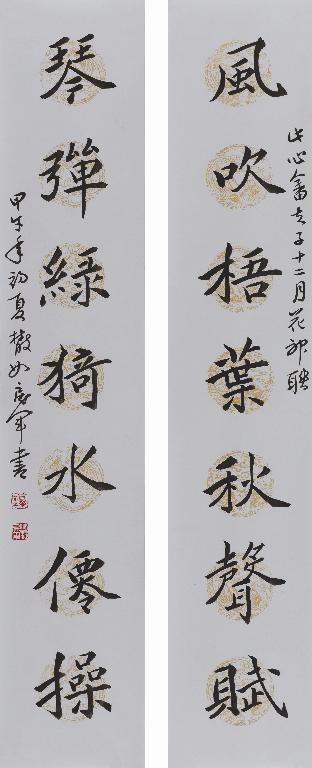 風吹梧葉秋聲賦
此心畬夫子十二月花神聯
琴彈綠猗水僊操
甲午年初夏
軍書